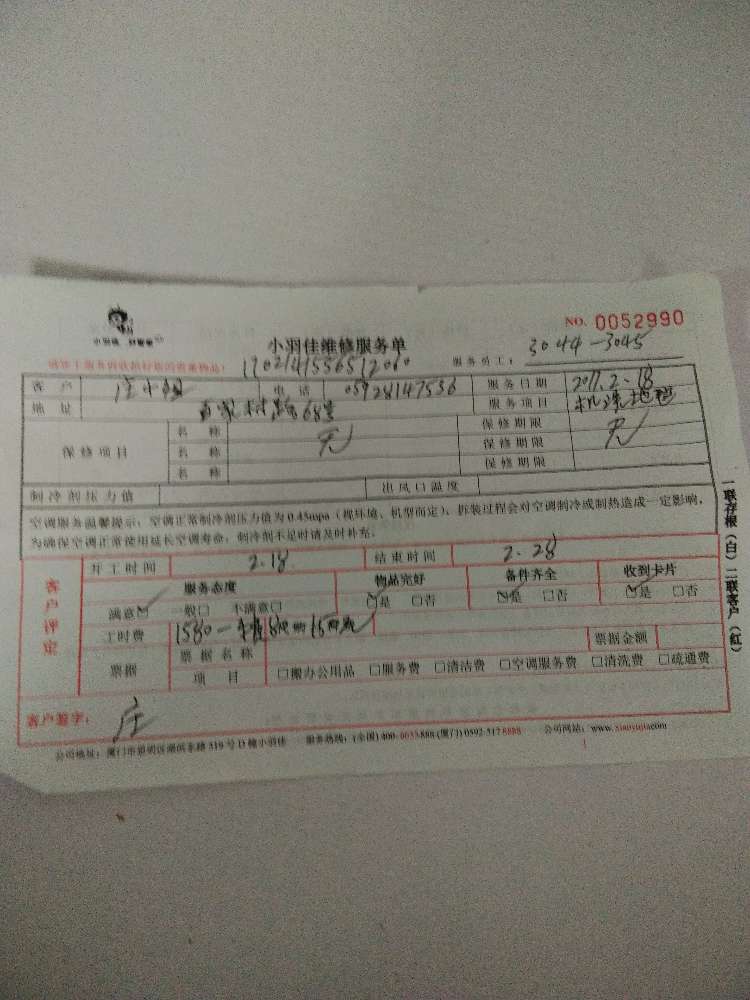 NO. 0052990
小羽佳维修服务单
服务员工： 3044-3045
客户 电话 05928147536 服务日期 2017.2.18
地址 68号 服务项目
保修项目 名称 无 保修期限 无
名称 保修期限
名称 保修期限
制冷剂压力值 出风口温度
空调服务温馨提示：空调正常制冷剂压力值为0.45mpa（视环境、机型而定）、拆装过程会对空调制冷或制热造成一定影响，
为确保空调正常使用延长空调寿命，制冷剂不足时请及时补充。
客户评定
开工时间 2.18 结束时间 2.28
服务态度 物品完好 备件齐全 收到卡片
满意☑ 一般□ 不满意□ ☑是 □否 ☑是 □否 ☑是 □否
工时费 1580 票据金额
票据 票据名称
项目 □搬办公用品 □服务费 □清洁费 □空调服务费 □清洗费 □疏通费
客户签字： 庄
公司地址：厦门市思明区湖滨东路319号D幢小羽佳 服务热线：(全国)400-0055888 (厦门)0592-5178888 公司网站：www.xiaoyujia.com
一联存根（白）二联客户（红）